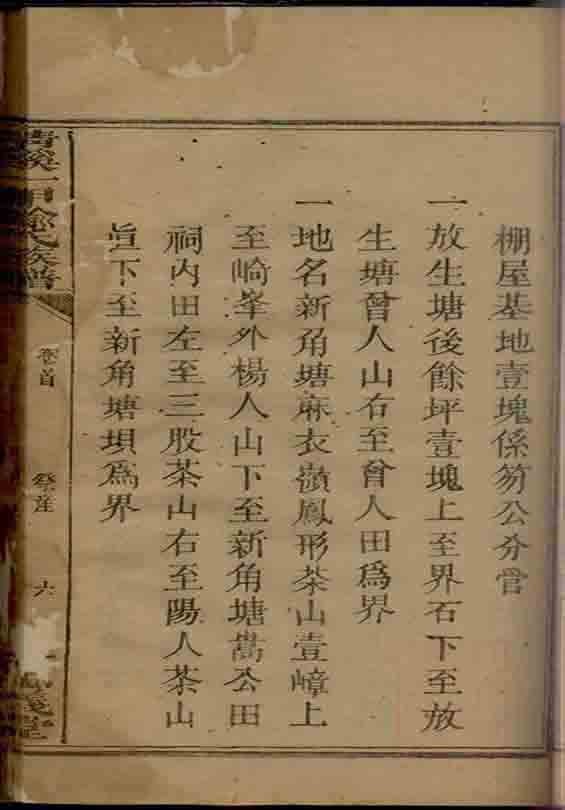 棚屋基地壹塊係笏公分管
一放生塘後餘坪壹塊上至界石下至放
生塘曾人山右至曾人田爲界
一地名新角塘麻衣嶺鳳形茶山壹嶂上
至崎峯外楊人山下至新角塘嵩公田
祠內田左至三股茶山右至陽人茶山
直下至新角塘垻爲界
清溪一甲 氏族譜
卷首
祭産
六
堂